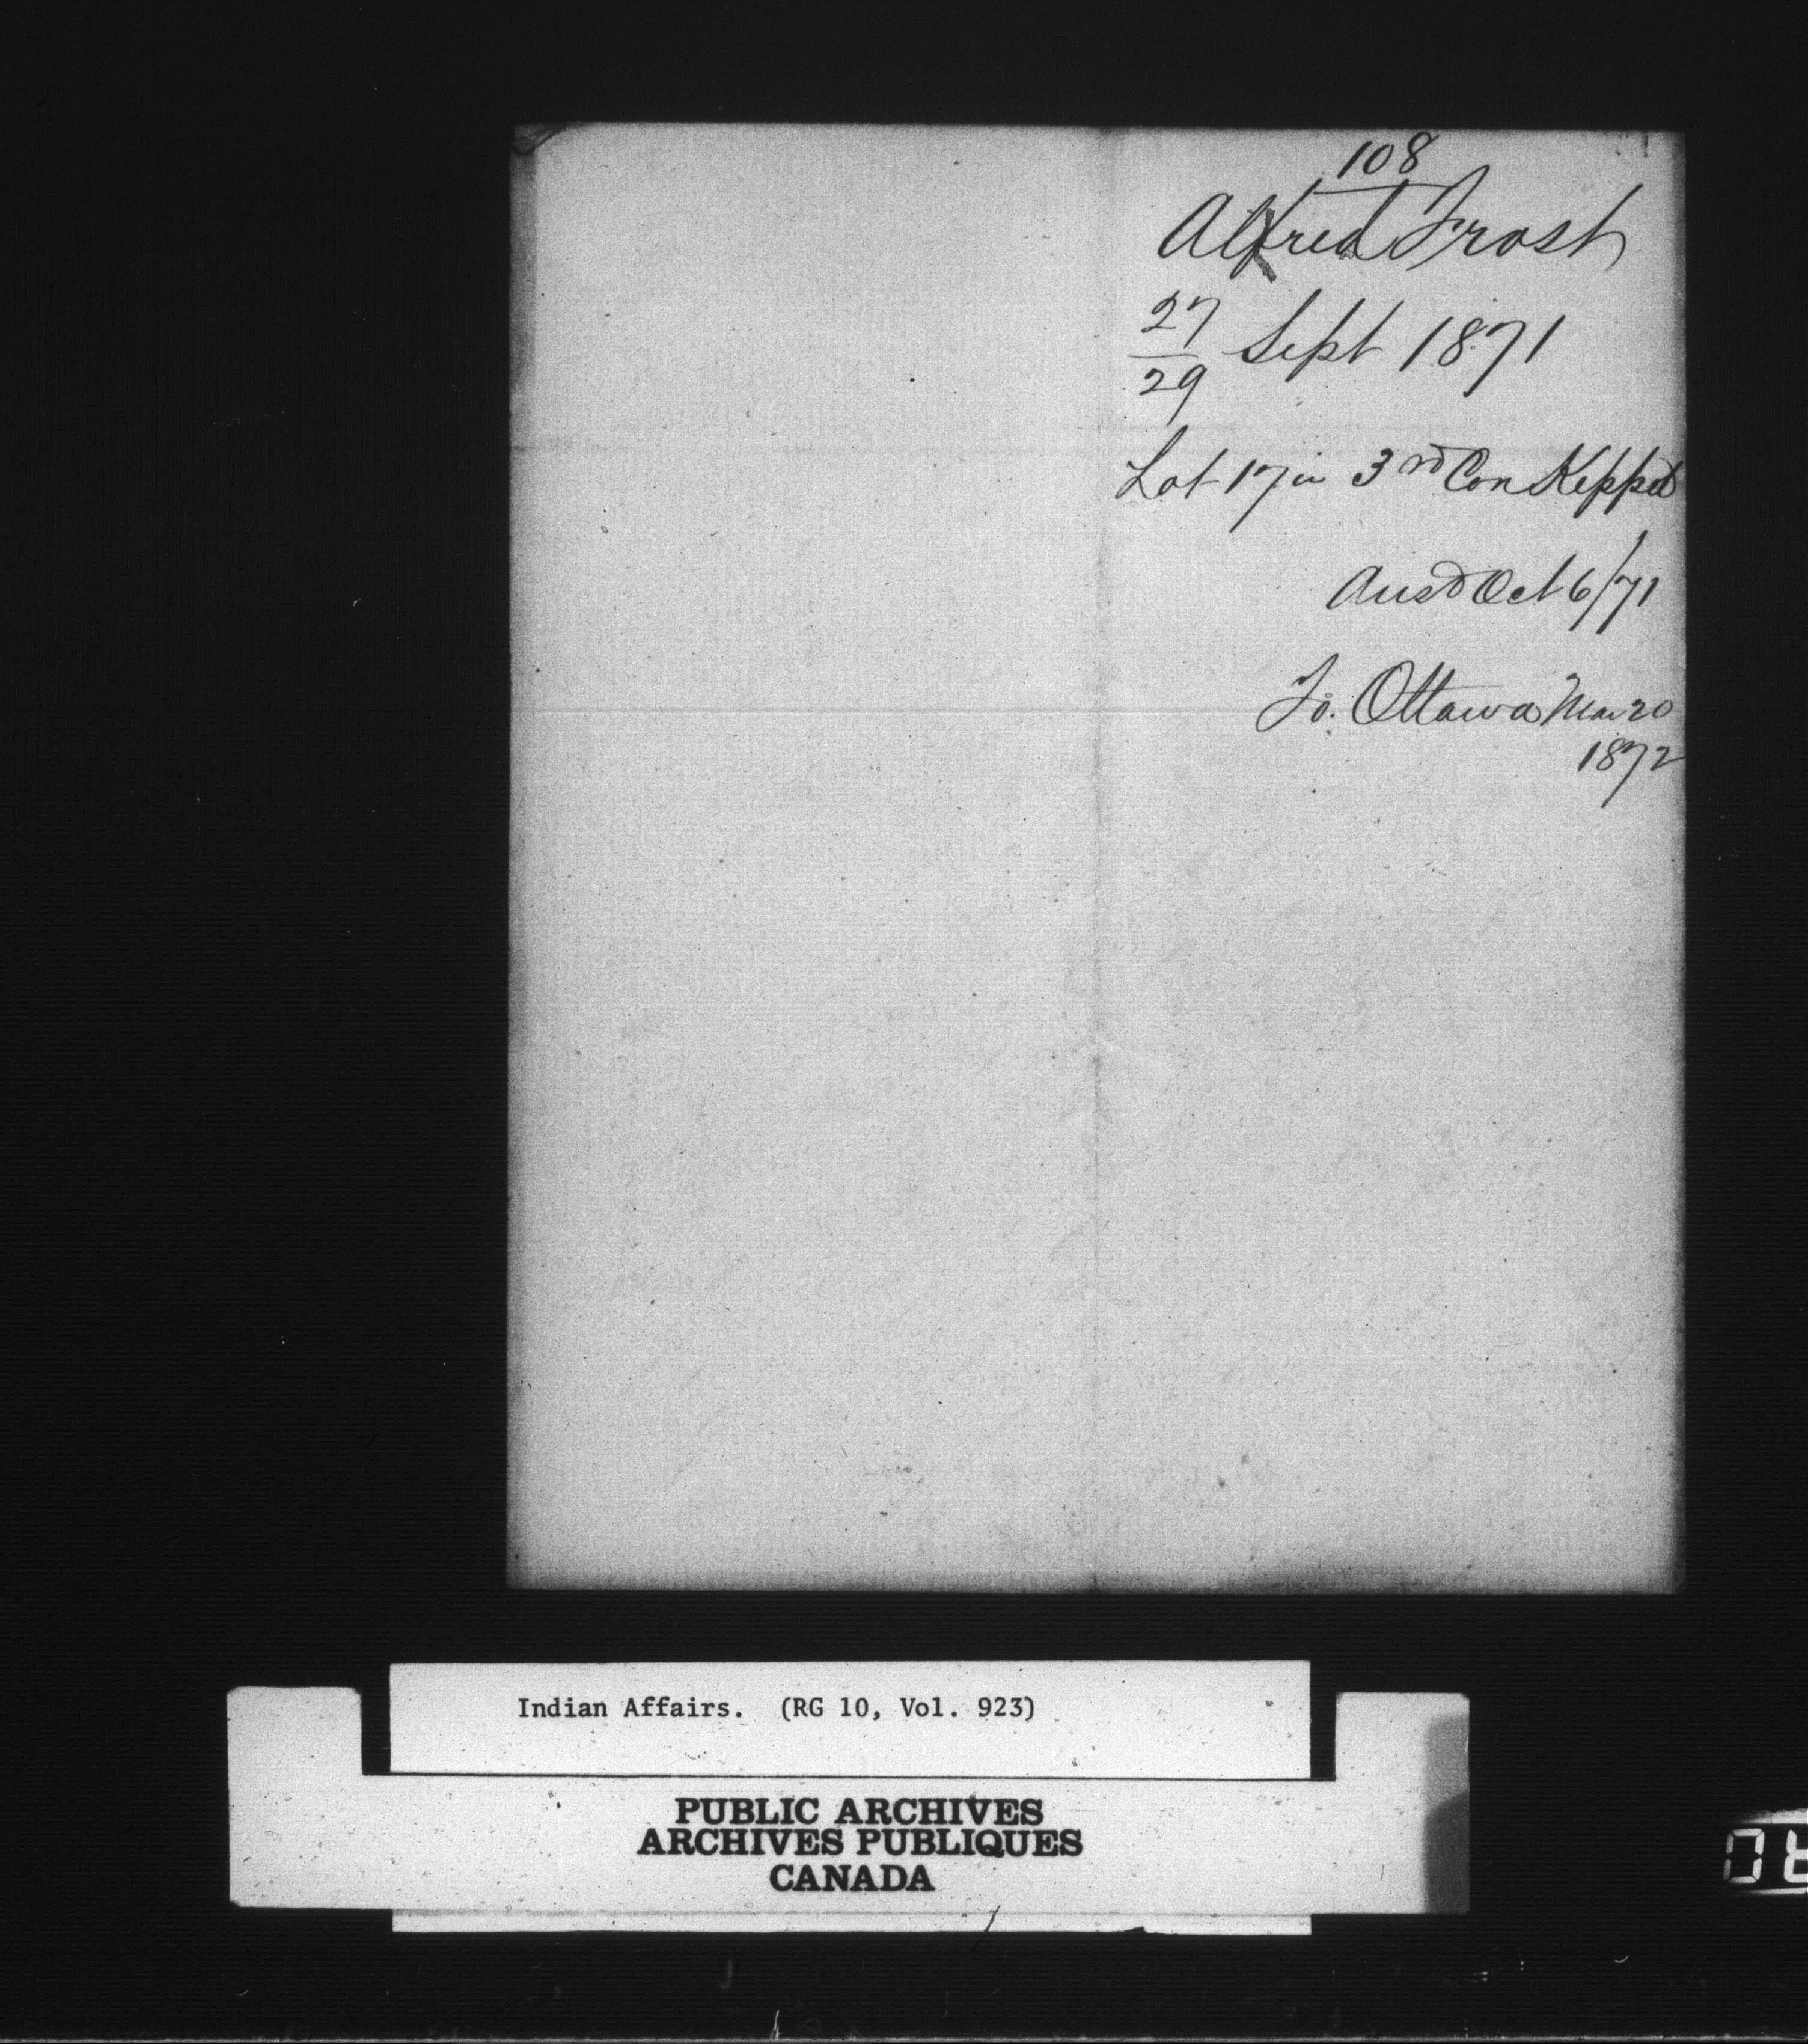 108
Alfred Frost
27
29 Sept 1871
Lot 17 in 3rd Con Keppel
Ansd Oct 6/71
To. Ottawa Mar 20
1872
Indian Affairs. (RG 10, Vol. 923)
PUBLIC ARCHIVES
ARCHIVES PUBLIQUES
CANADA